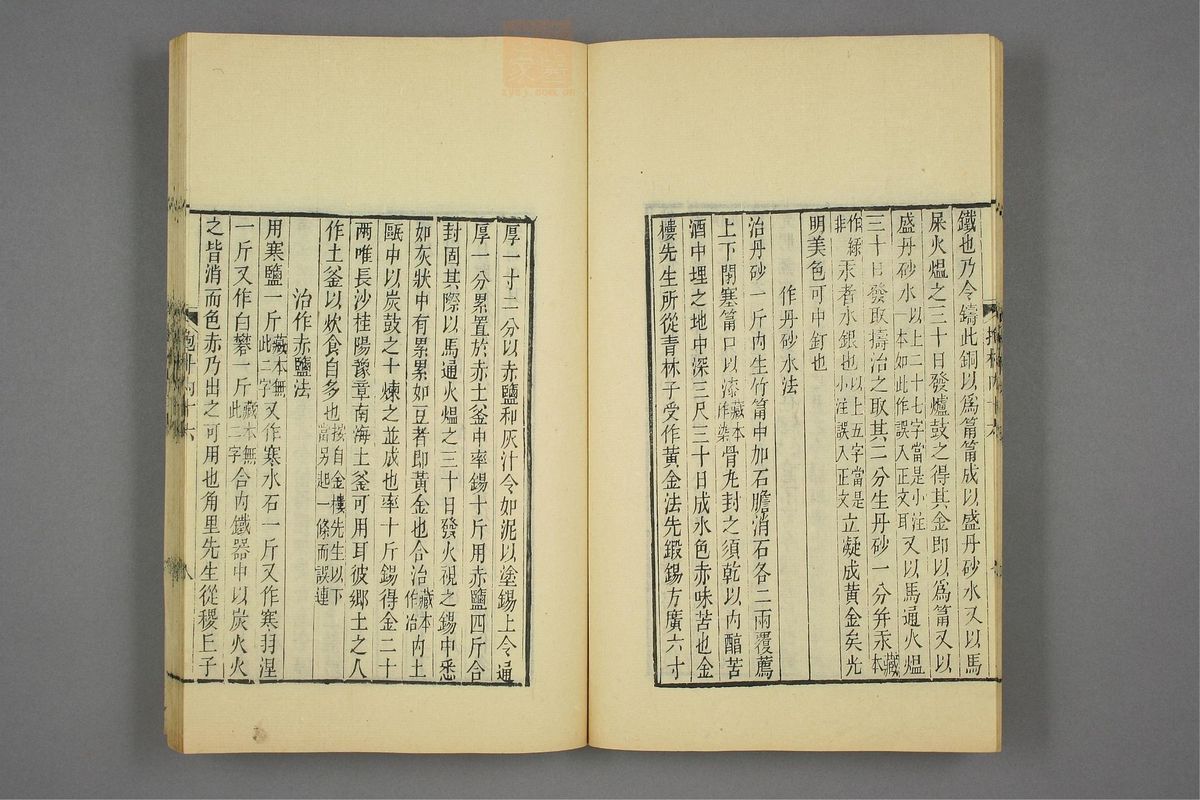 鐵也乃令鑄此銅以爲筩筩成以盛丹砂水又以馬
屎火熅之三十日發爐鼓之得其金即以爲筩又以
盛丹砂水以上二十七字當是小注一本如此作誤入正文耳又以馬通火熅
三十日發取擣治之取其二分生丹砂一分并汞藏本
作綠非汞者水銀也以上五字當是小注誤入正文立凝成黃金矣光
明美色可中釘也
作丹砂水法
治丹砂一斤內生竹筩中加石膽消石各二兩覆薦
上下閉塞筩口以漆藏本作染骨丸封之須乾以內醕苦
酒中埋之地中深三尺三十日成水色赤味苦也金
樓先生所從青林子受作黃金法先鍛錫方廣六寸
厚一寸二分以赤鹽和灰汁令如泥以塗錫上令通
厚一分累置於赤土釜中率錫十斤用赤鹽四斤合
封固其際以馬通火熅之三十日發火視之錫中悉
如灰狀中有累累如豆者即黃金也合治藏本作冶內土
甌中以炭鼓之十煉之並成也率十斤錫得金二十
兩唯長沙桂陽豫章南海土釜可用耳彼鄉土之人
作土釜以炊食自多也按自金樓先生以下當另起一條而誤連
治作赤鹽法
用寒鹽一斤藏本無此二字又作寒水石一斤又作寒羽涅
一斤又作白礬一斤藏本無此二字合內鐵器中以炭火火
之皆消而色赤乃出之可用也角里先生從稷丘子
八